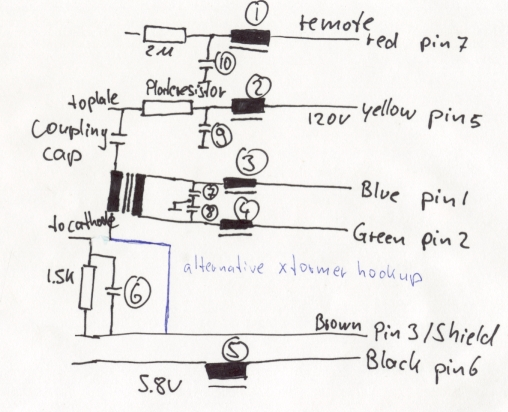 ① remote
2M red pin 7
⑩
to plate Plateresistor ② yellow pin 5
120V
Coupling
cap
⑨
③
⑦ Blue pin 1
⑧ ④
to cathode Green pin 2
alternative xformer hookup
1.5K ⑥
Brown Pin 3/Shield
⑤ Black pin 6
5.8V